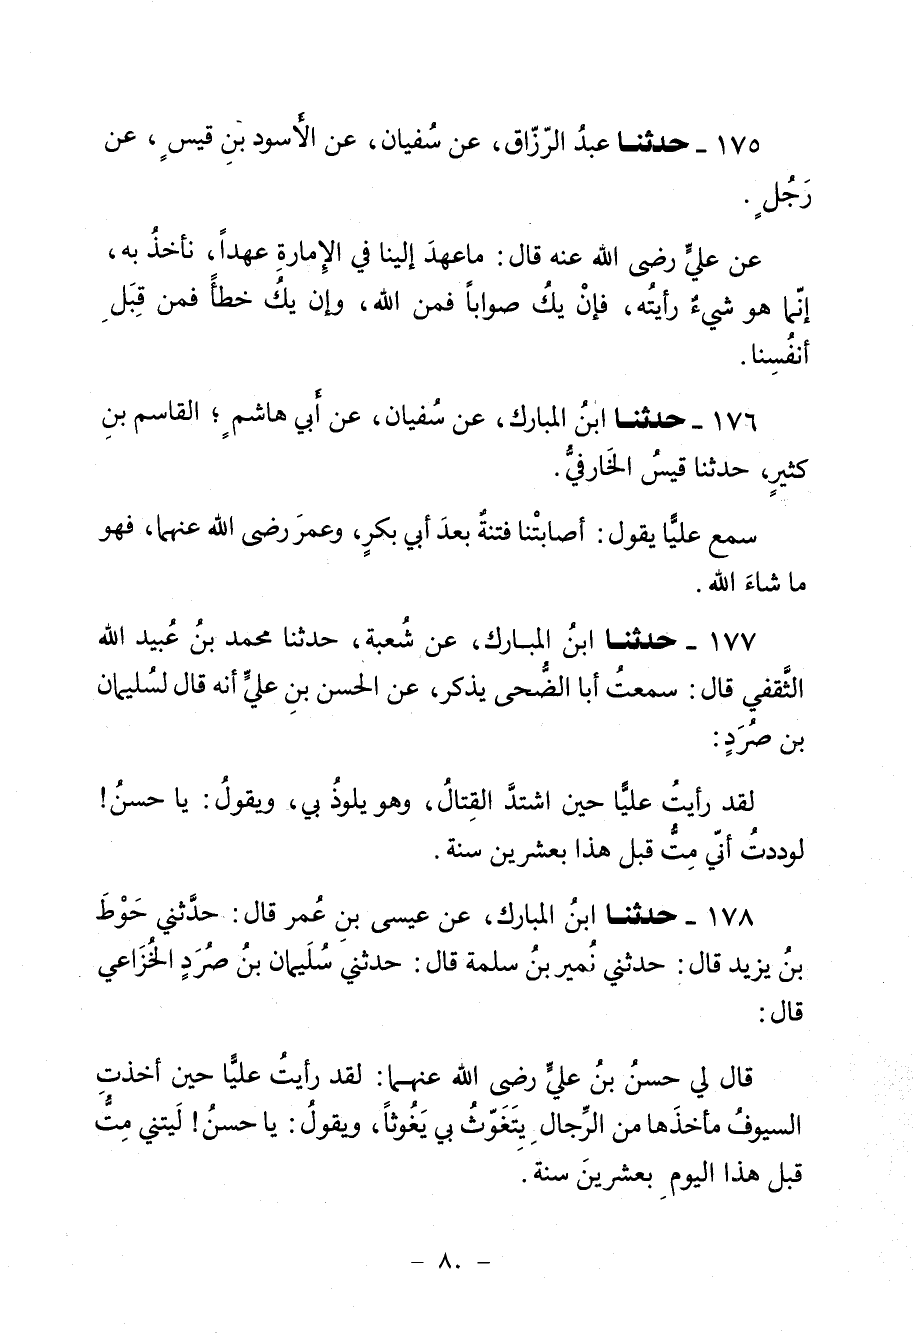 ١٧٥ ـ حدثنـا عبدُ الرّزّاق، عن سُفيان، عن الأَسود بنِ قيسٍ، عن
رَجُلٍ.
عن عليٍّ رضى الله عنه قال: ماعهدَ إلينا في الإِمارةِ عهداً، نأخذُ به،
إنّما هو شيءٌ رأيتُه، فإنْ يكُ صواباً فمن الله، وإن يكُ خطأً فمن قِبَلِ
أنفُسِنا.
١٧٦ ـ حدثنـا ابنُ المبارك، عن سُفيان، عن أَبي هاشمٍ؛ القاسم بنِ
كثيرٍ، حدثنا قيسُ الخَارفيُّ.
سمع عليًّا يقول: أصابتْنا فتنةٌ بعدَ أبي بكرٍ، وعمرَ رضى الله عنهما، فهو
ما شاءَ الله.
١٧٧ ـ حدثنـا ابنُ المبـارك، عن شُعبة، حدثنا محمد بنُ عُبيد الله
الثَّقفي قال: سمعتُ أبا الضُّحى يذكر، عن الحسن بنِ عليٍّ أنه قال لسُليمان
بن صُرَدٍ:
لقد رأيتُ عليًّا حين اشتدَّ القِتالُ، وهو يلوذُ بي، ويقولُ: يا حسنُ!
لوددتُ أنّي مِتُّ قبل هذا بعشرين سنة.
١٧٨ ـ حدثنـا ابنُ المبارك، عن عيسى بنِ عُمر قال: حدَّثني حَوْطَ
بنُ يزيد قال: حدثني نُمير بنُ سلمة قال: حدثني سُلَيمان بنُ صُرَدٍ الخُزَاعي
قال:
قال لي حسنُ بنُ عليٍّ رضى الله عنهـما: لقد رأيتُ عليًّا حين أخذتِ
السيوفُ مأخذَها من الرِّجالِ يتَغَوّثُ بي يَغُوثاً، ويقولُ: يا حسنُ! لَيتني مِتُّ
قبل هذا اليومِ بعشرينَ سنة.
– ٨٠ –